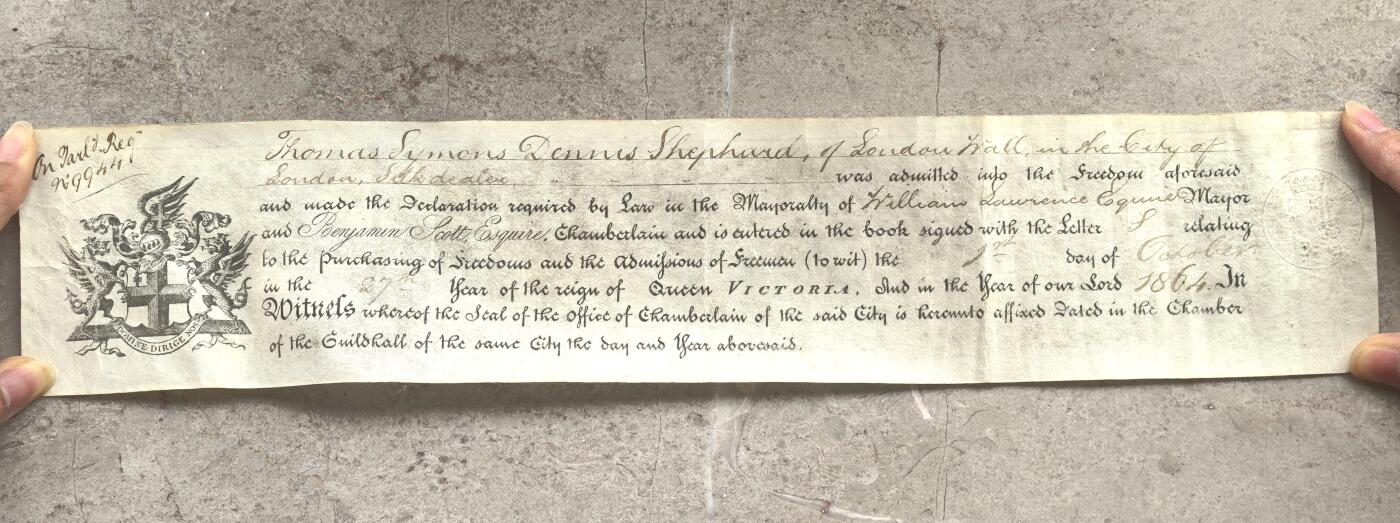 On Parl.y Reg
No 9944
Thomas Symons Dennis Shephard, of London Wall, in the City of
London, Silkdealer, was admitted into the Freedom aforesaid
and made the Declaration required by Law in the Mayoralty of William Lawrence Esquire Mayor
and Benjamin Scott, Esquire, Chamberlain and is entered in the book signed with the Letter S relating
to the Purchasing of Freedoms and the Admissions of Freemen (to wit) the 1st day of October
in the 27th Year of the reign of Queen VICTORIA, And in the Year of our Lord 1864. In
Witness whereof the Seal of the Office of Chamberlain of the said City is hereunto affixed Dated in the Chamber
of the Guildhall of the same City the day and Year abovesaid.
DOMINE DIRIGE NOS